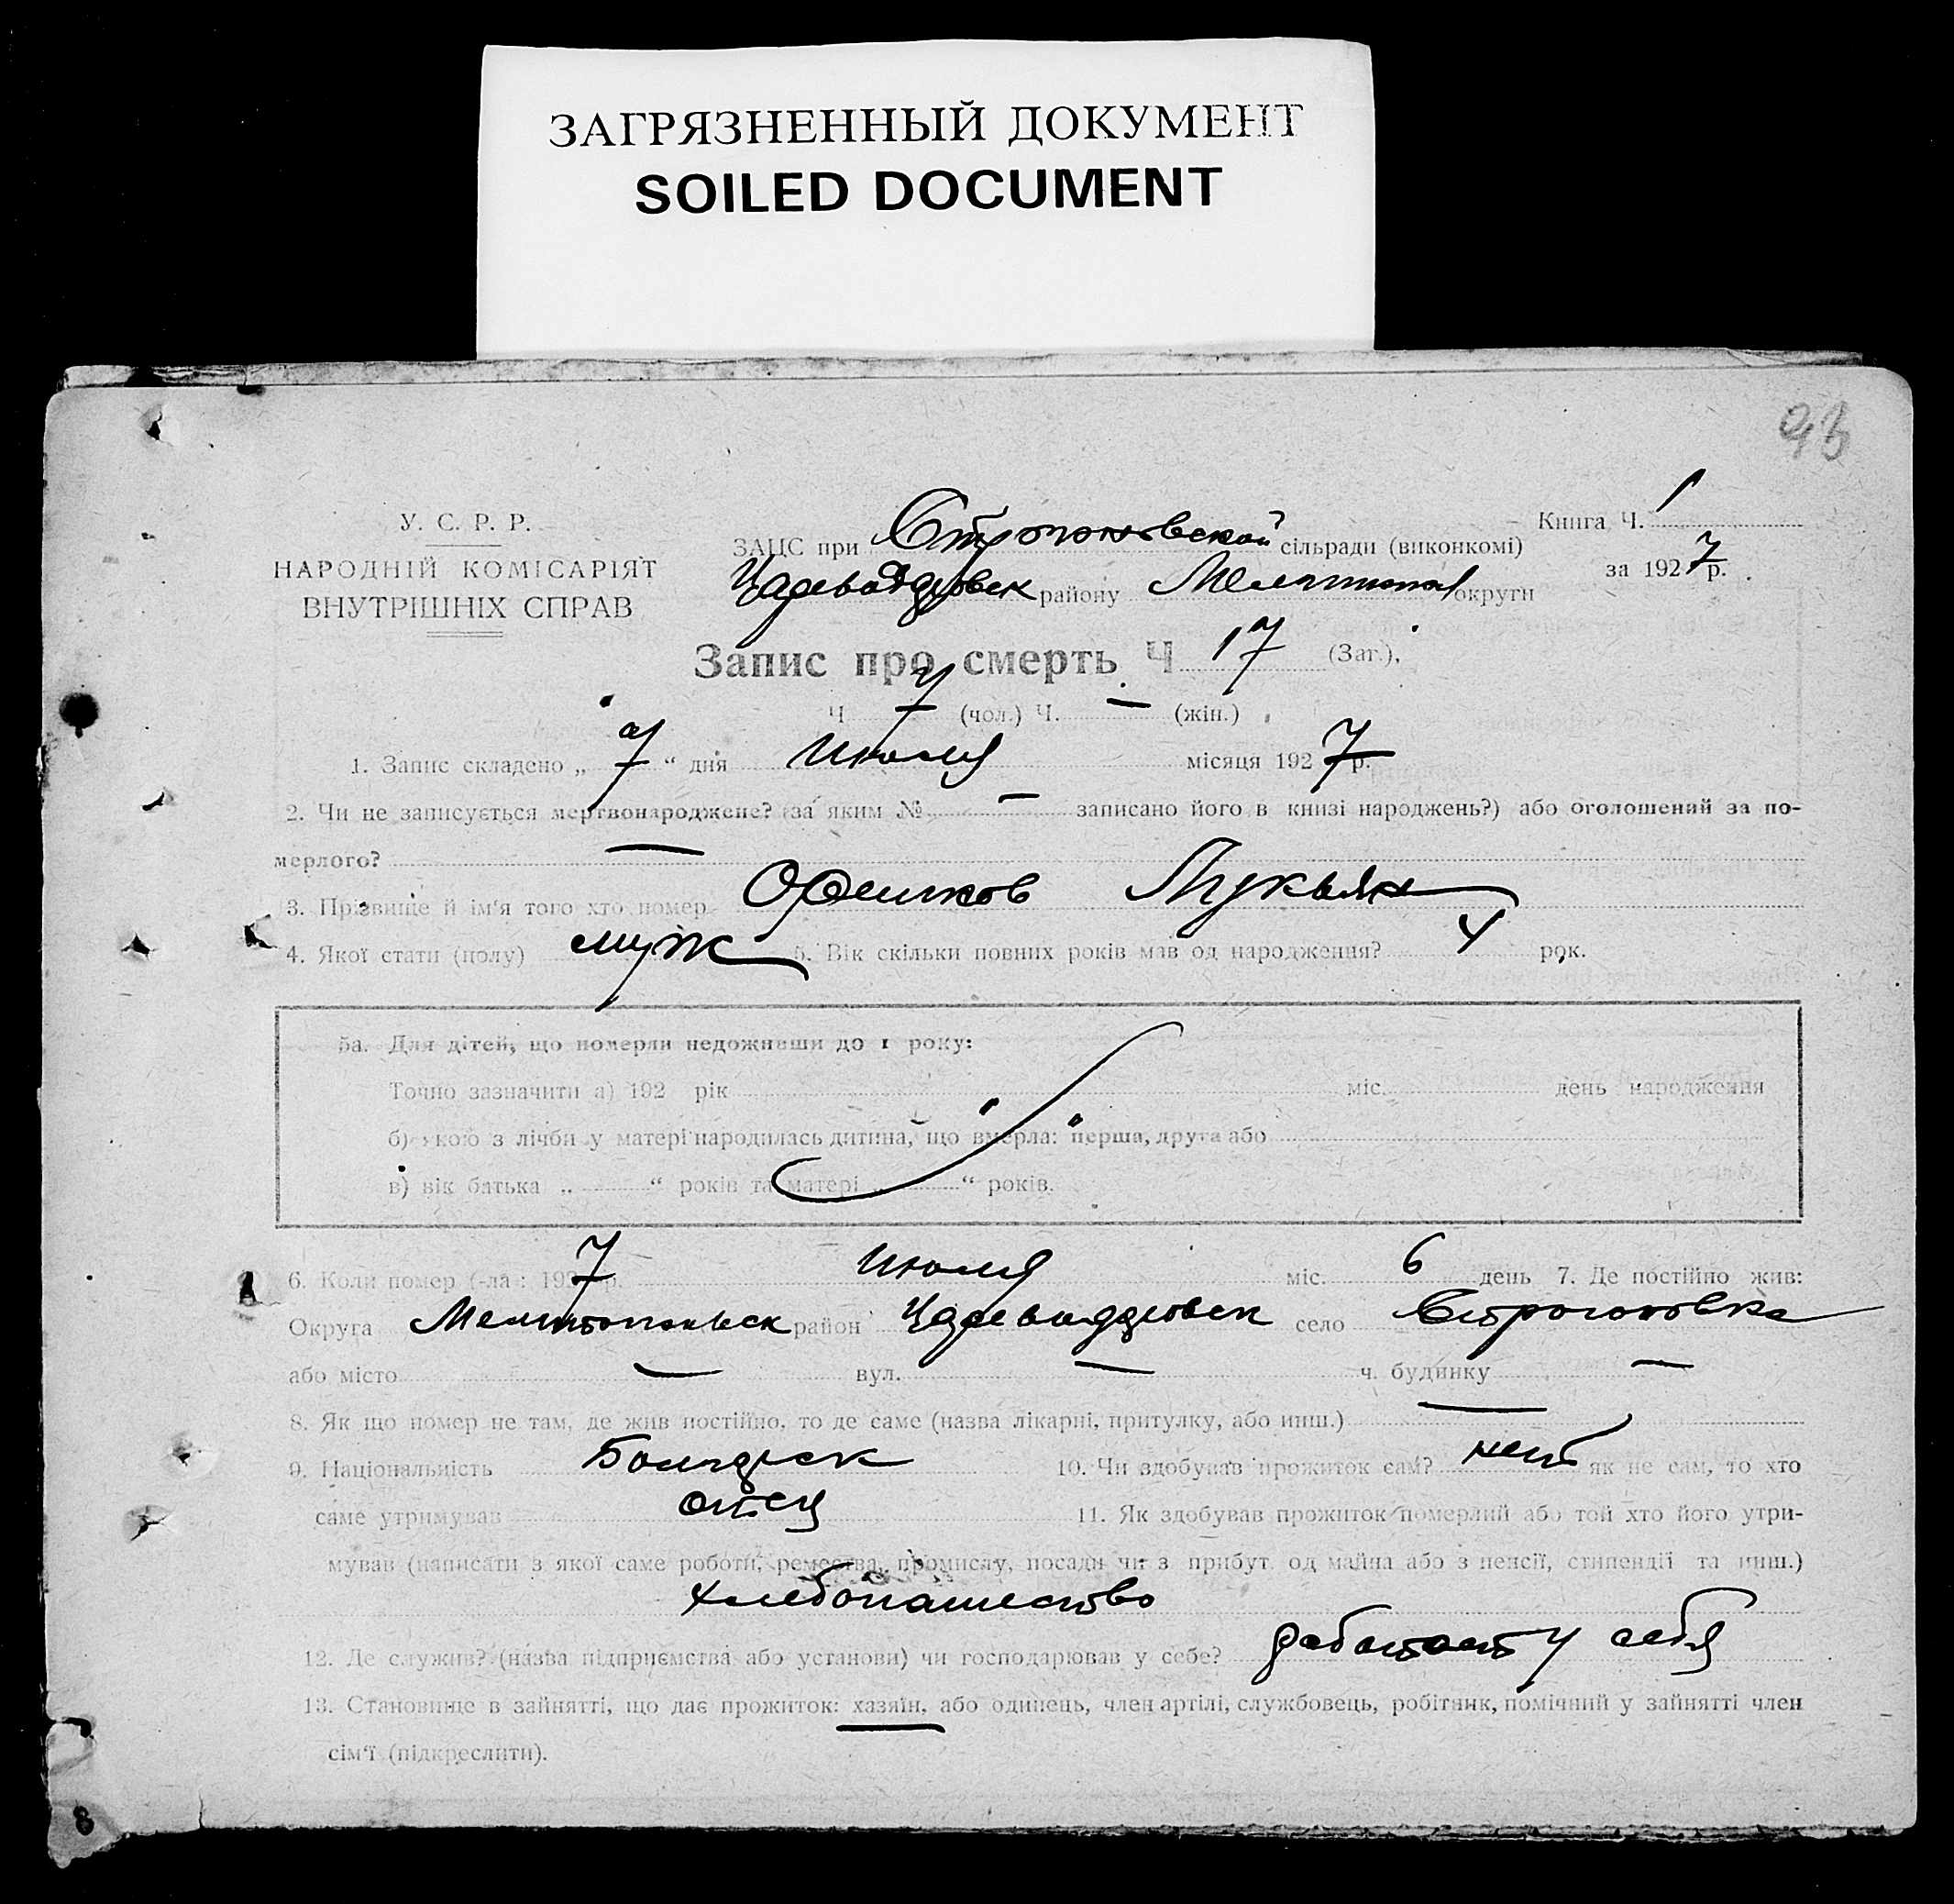 ЗАГРЯЗНЕННЫЙ ДОКУМЕНТ
SOILED DOCUMENT
93
У. С. Р. Р.
НАРОДНІЙ КОМІСАРІЯТ
ВНУТРІШНІХ СПРАВ
ЗАЦС при Строгоновской сільради (виконкомі)
Книга Ч. 1
за 1927 р.
району Мелитопол округи
Запис про смерть Ч 17 (Заг.),
Ч 7 (чол.) Ч. — (жін.)
1. Запис складено „ 7 “ дня Июля місяця 1927 р.
2. Чи не записується мертвонароджене? (за яким № — записано його в книзі народжень?) або оголошений за по-
мерлого? —
3. Прізвище й ім'я того хто помер Орешков Лукьян
4. Якої стати (полу) муж 5. Вік скільки повних років мав од народження? 4 рок.
5а. Для дітей, що померли недоживши до 1 року:
Точно зазначити а) 192 рік міс. день народження
б) якою з лічби у матері народилась дитина, що вмерла: перша, друга або
в) вік батька „ “ років та матері „ “ років.
6. Коли помер (-ла): 1927 р. Июля міс. 6 день 7. Де постійно жив:
Округа Мелитопольск район село Строгоновка
або місто — вул. — ч. будинку —
8. Як що помер не там, де жив постійно, то де саме (назва лікарні, притулку, або инш.) —
9. Національність 10. Чи здобував прожиток сам? нет як не сам, то хто
саме утримував отец 11. Як здобував прожиток померлий або той хто його утри-
мував (написати з якої саме роботи, ремества, промислу, посади чи з прибут. од майна або з пенсії, стипендії та инш.)
хлебопашество
12. Де служив? (назва підприємства або установи) чи господарював у себе? работает у себя
13. Становище в зайнятті, що дає прожиток: хазяїн, або одинець, член артілі, службовець, робітник, помічний у зайнятті член
сім'ї (підкреслити).
8